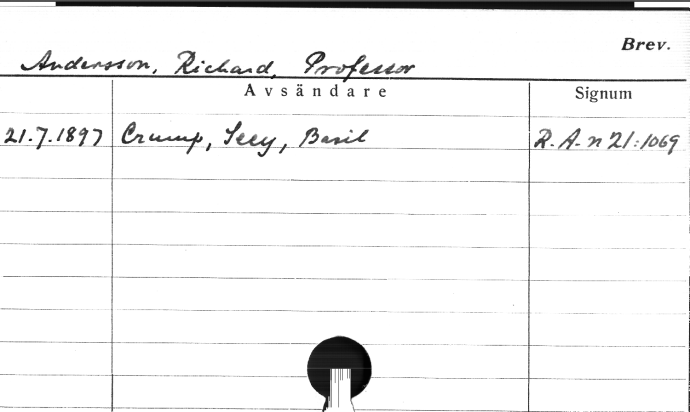 Brev.
Andersson, Richard, Professor
Avsändare Signum
21.7.1897 Crump, Basil R.A. n 21:1069